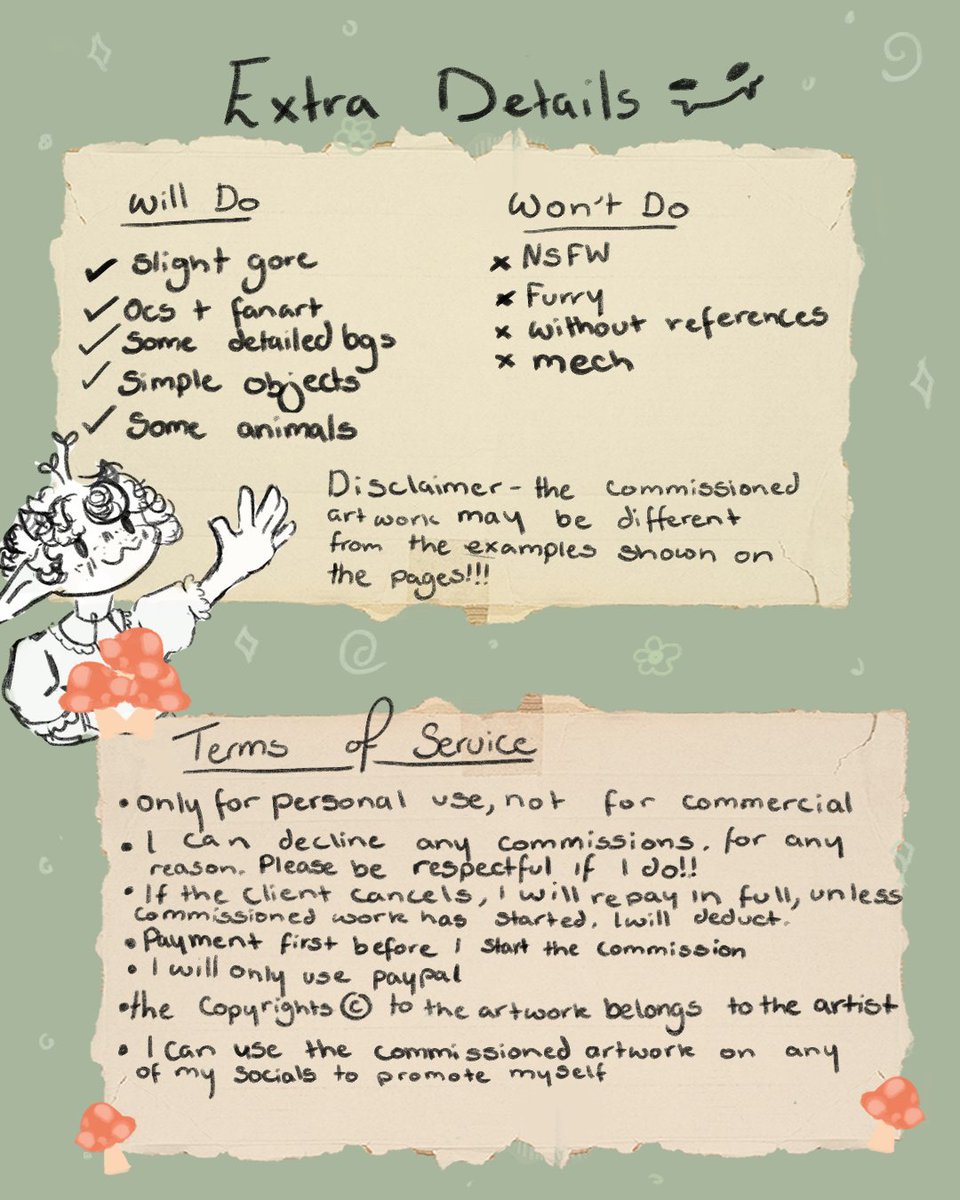 Extra Details
Will Do
✓ Slight gore
✓ Ocs + fanart
✓ Some detailed bgs
✓ Simple objects
✓ Some animals
Won't Do
× NSFW
× Furry
× without references
× mech
Disclaimer - the commissioned
artwork may be different
from the examples shown on
the pages!!!
Terms of Service
• only for personal use, not for commercial
• I can decline any commissions. for any
reason. Please be respectful if I do!!
• If the client cancels, I will repay in full, unless
commissioned work has started. I will deduct.
• Payment first before I start the commission
• I will only use paypal
• the Copyrights © to the artwork belongs to the artist
• I can use the commissioned artwork on any
of my socials to promote myself